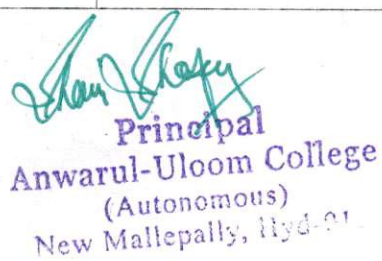 Principal
Anwarul-Uloom College
(Autonomous)
New Mallepally, Hyd-01.